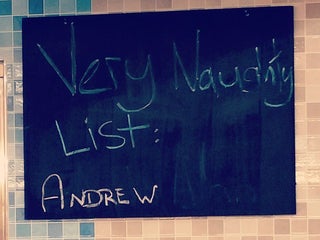 Very Naughty
List:
ANDREW